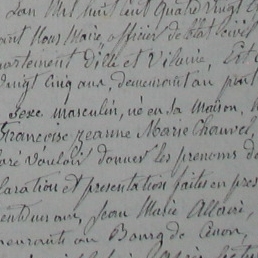 L'an Mil huit cent quatre vingt
ant Nous Maire officier de l'Etat civil
partement d'Ille et Vilaine, Est
vingt cinq ans, demeurant au pont
Sexe masculin, né en sa Maison,
Françoise Jeanne Marie Chauvel,
aré vouloir donner les prenoms de
laration et presentation faites en pres
ent un ans, Jean Marie
emeurants au Bourg de